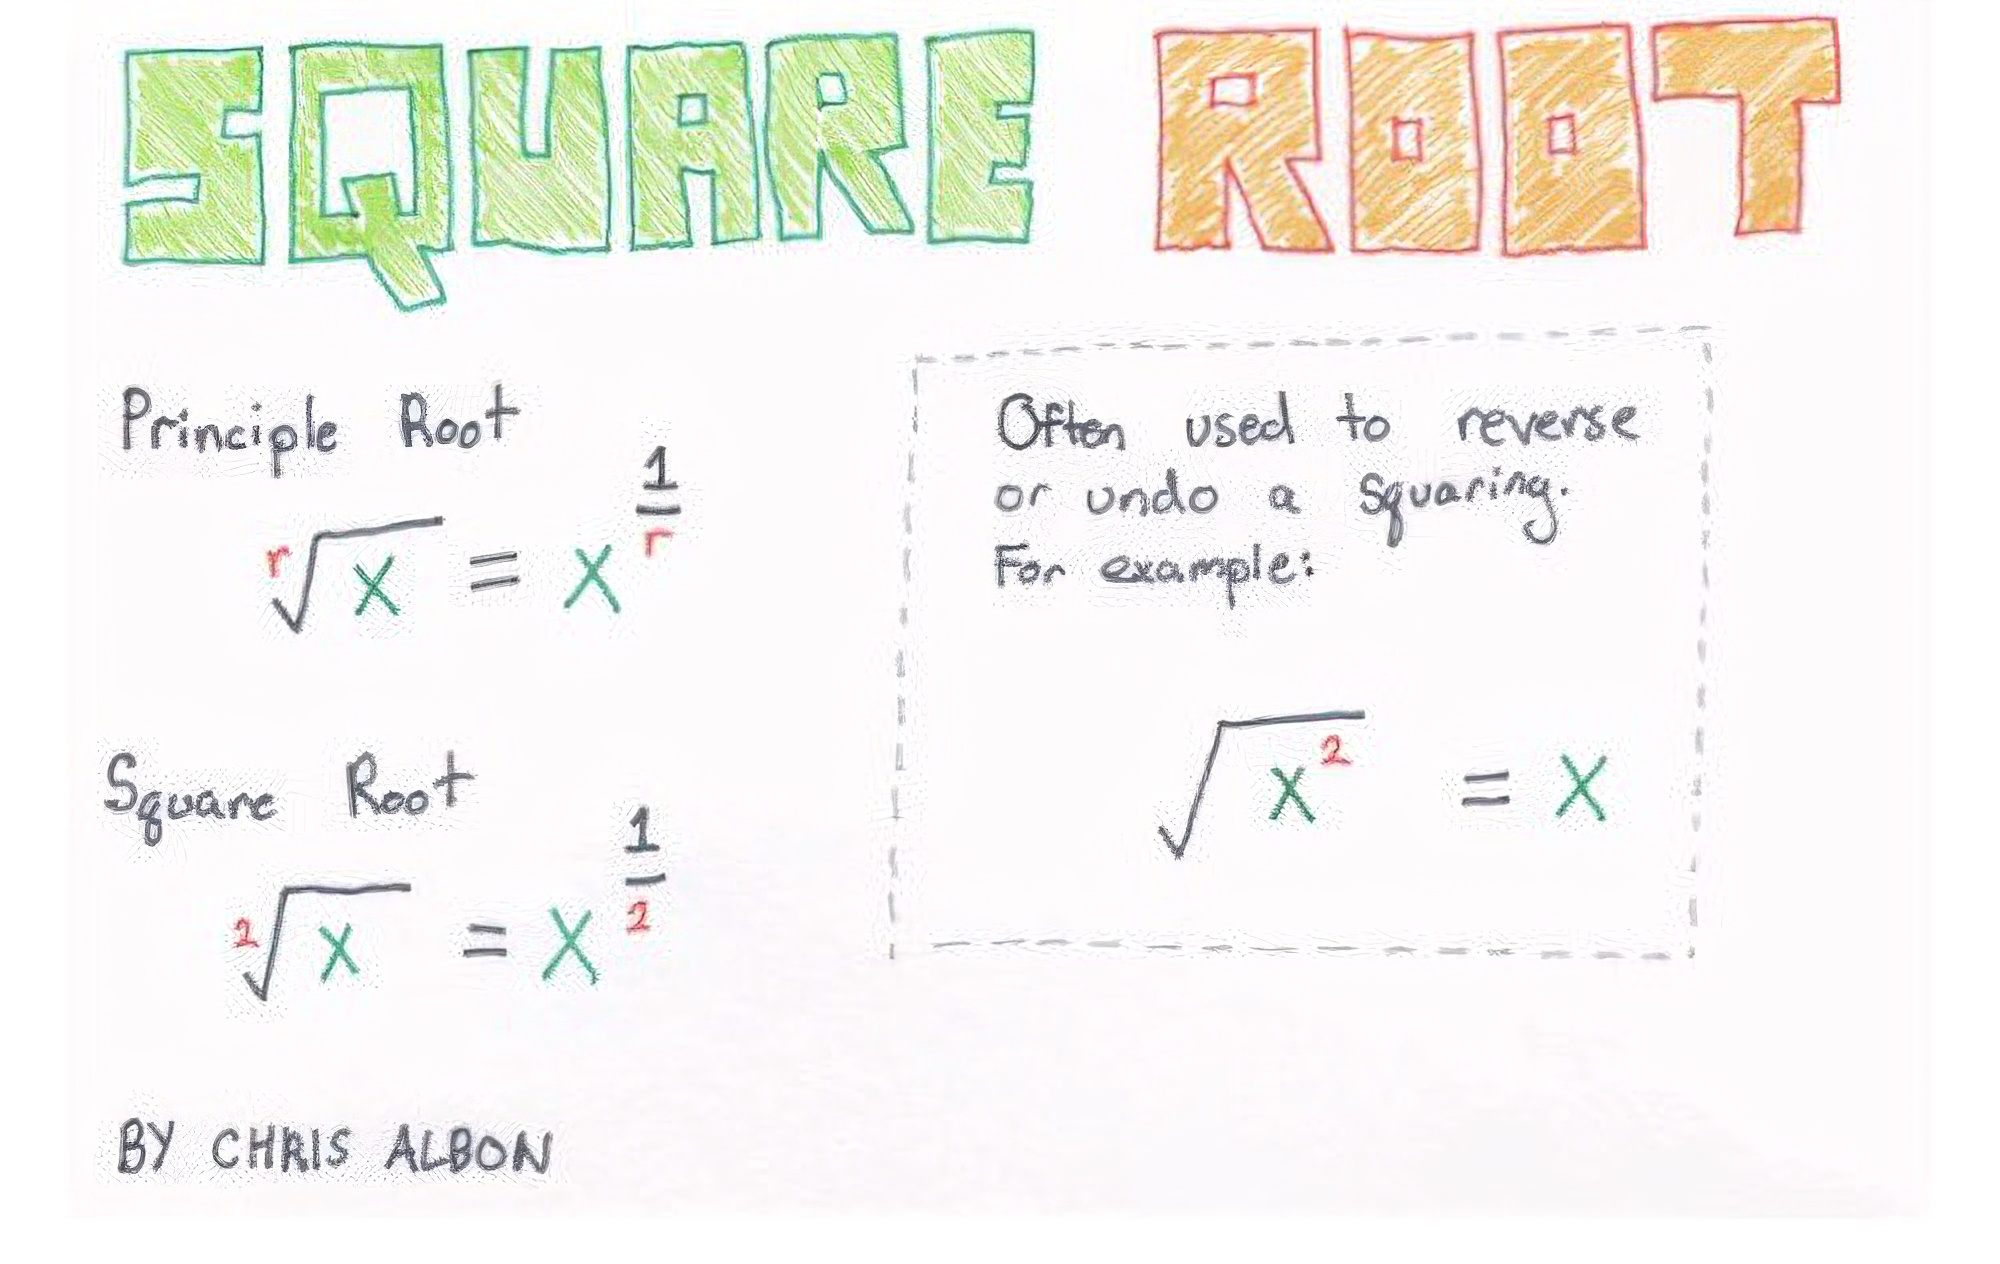 SQUARE ROOT
Principle Root
r√x = x^(1/r)
Square Root
2√x = x^(1/2)
Often used to reverse
or undo a squaring.
For example:
√x^2 = x
BY CHRIS ALBON